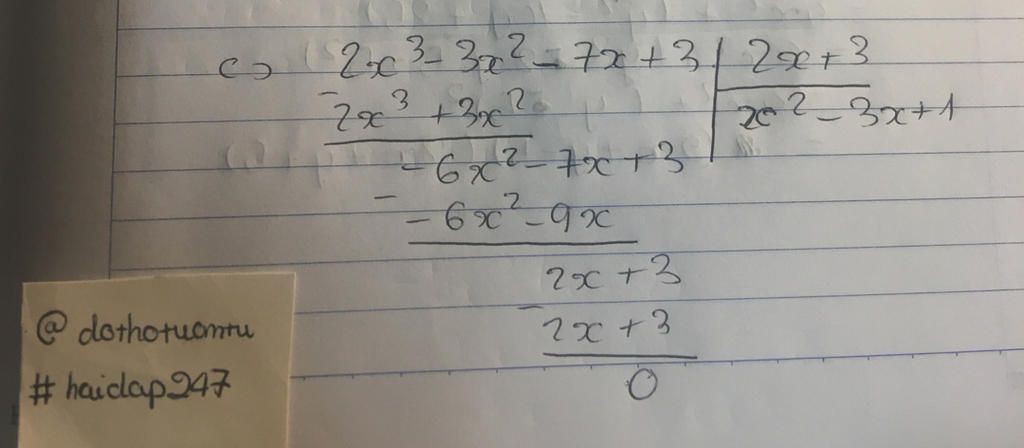 c) 2x³ - 3x² - 7x + 3 | 2x + 3
- 2x³ + 3x² | x² - 3x + 1
- 6x² - 7x + 3
- - 6x² - 9x
2x + 3
- 2x + 3
0
@ dothotuomtu
# haidap247